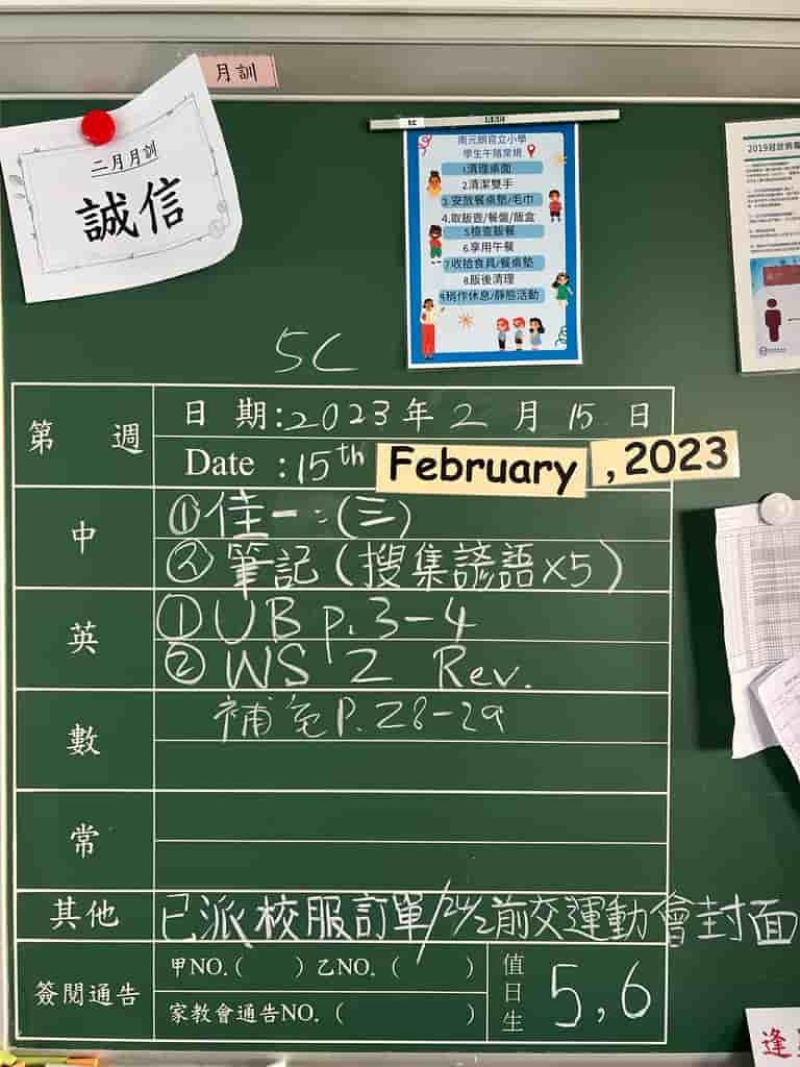 月訓
二月月訓
誠信
南元朗官立小學
學生午膳常規
1.清理桌面
2.清潔雙手
3.安放餐桌墊/毛巾
4.取飯壺/餐盤/飯盒
5.檢查飯餐
6.享用午餐
7.收拾食具/餐桌墊
8.飯後清理
9.稍作休息/靜態活動
5C
第 週
日 期:2023年2月15日
Date :15th February ,2023
中
①佳一:(三)
②筆記(搜集諺語x5)
英
①UB p.3-4
②WS 2 Rev.
數
補充P.28-29
常
其他
已派校服訂單/24/2前交運動會封面
簽閱通告
甲NO.( ) 乙NO.( )
家教會通告NO.( )
值日生
5,6
逢